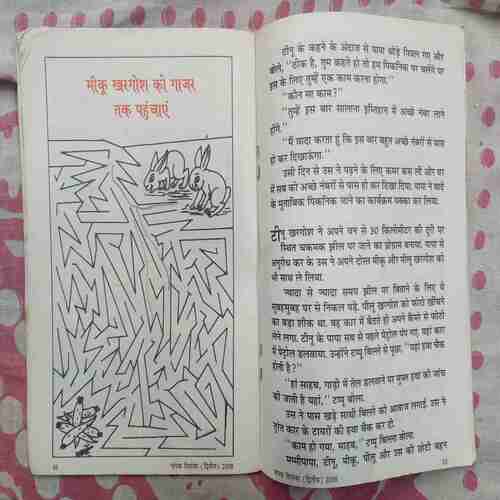 मीकू खरगोश को गाजर
तक पहुंचाएं
टीनू के कहने के अंदाज से पापा थोड़े पिघल गए और
बोले, "ठीक है, तुम कहते हो तो हम पिकनिक पर चलेंगे पर
इस के लिए तुम्हें एक काम करना होगा."
"कौन सा काम?"
"तुम्हें इस बार सालाना इम्तिहान में अच्छे नंबर लाने
होंगे."
"मैं वादा करता हूं कि इस बार बहुत अच्छे नंबरों से पास
हो कर दिखाऊंगा."
उसी दिन से उस ने पढ़ने के लिए कमर कस ली और घर
में सब को अच्छे नंबरों से पास हो कर दिखा दिया. पापा ने वादे
के मुताबिक पिकनिक जाने का कार्यक्रम पक्का कर लिया.
टीनू खरगोश ने अपने वन से 30 किलोमीटर की दूरी पर
स्थित चकमक झील पर जाने का प्रोग्राम बनाया. पापा से
अनुरोध कर के उस ने अपने दोस्त मीकू और पीलू खरगोश को
भी साथ ले लिया.
ज्यादा से ज्यादा समय झील पर बिताने के लिए ये
सुबहसुबह घर से निकल पड़े. पीलू खरगोश को फोटो खींचने
का बड़ा शौक था. वह कार में बैठते ही अपने कैमरे से फोटो
लेने लगा. टीनू के पापा सब से पहले पेट्रोल पंप गए. वहां कार
में पेट्रोल डलवाया. उन्होंने टप्पू बिल्ले से पूछा, "यहां हवा चैक
होती है?"
"हां साहब, गाड़ी में तेल डलवाने पर मुफ्त हवा की जांच
की जाती है यहां," टप्पू बोला.
उस ने पास खड़े साथी बिल्ले को आवाज लगाई. उस ने
तुरंत कार के टायरों की हवा चैक कर दी.
"काम हो गया, साहब," टप्पू बिल्ला बोला.
मम्मीपापा, टीनू, मीकू, पीलू और उस की छोटी बहन